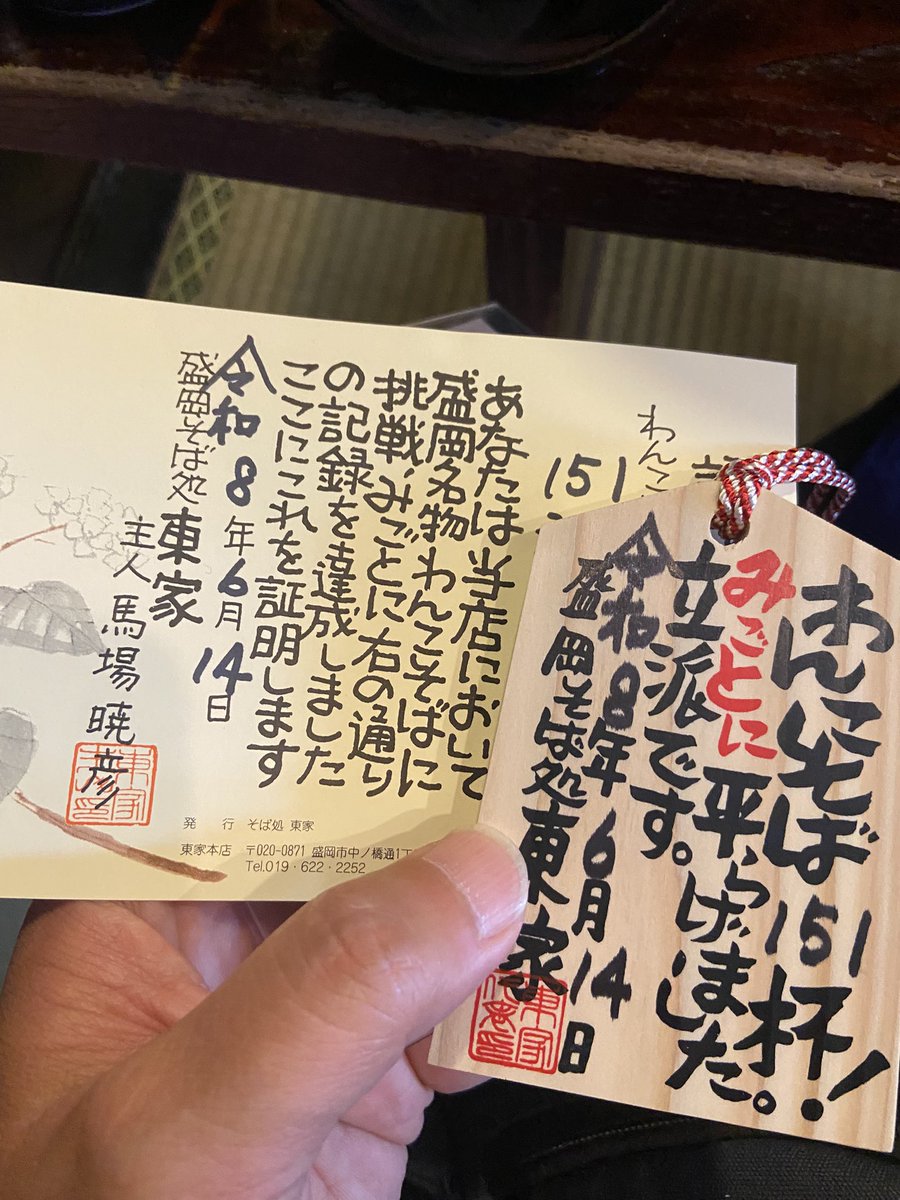 わんこ
151
あなたは当店において
盛岡名物わんこそばに
挑戦、みごとに右の通り
の記録を達成しました
ここにこれを証明します
令和8年6月14日
盛岡そば処 東家
主人 馬場 暁彦
発 行 そば処 東家
東家本店 〒020-0871 盛岡市中ノ橋通1丁
Tel.019・622・2252
わんこそば151杯!
みごとに平らげました。
立派です。
令和8年6月14日
盛岡そば処東家
東家